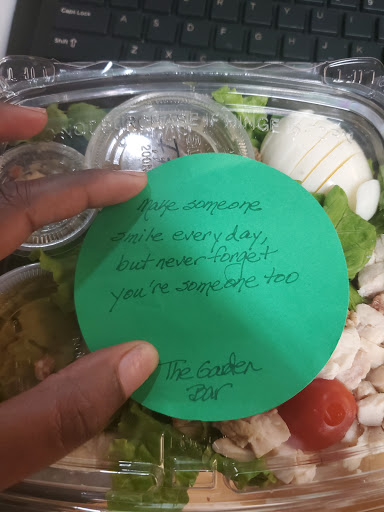 Caps Lock
Shift
Make someone
smile every day,
but never forget
you're someone too
The Garden
Bar